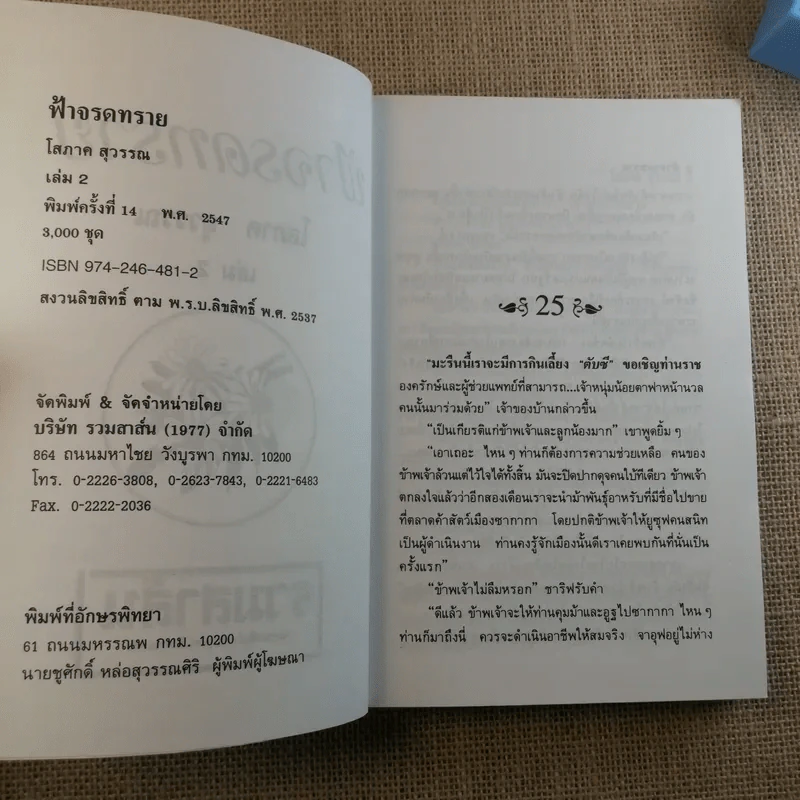 ฟ้าจรดทราย
โสภาค สุวรรณ
เล่ม 2
พิมพ์ครั้งที่ 14 พ.ศ. 2547
3,000 ชุด
ISBN 974-246-481-2
สงวนลิขสิทธิ์ ตาม พ.ร.บ.ลิขสิทธิ์ พ.ศ. 2537
จัดพิมพ์ & จัดจำหน่ายโดย
บริษัท รวมสาส์น (1977) จำกัด
864 ถนนมหาไชย วังบูรพา กทม. 10200
โทร. 0-2226-3808, 0-2623-7843, 0-2221-6483
Fax. 0-2222-2036
พิมพ์ที่อักษรพิทยา
61 ถนนมหรรณพ กทม. 10200
นายชูศักดิ์ หล่อสุวรรณศิริ ผู้พิมพ์ผู้โฆษณา
25
"มะรืนนี้เราจะมีการกินเลี้ยง "ตับซี" ขอเชิญท่านราช
องครักษ์และผู้ช่วยแพทย์ที่สามารถ...เจ้าหนุ่มน้อยตาฟ้าหน้านวล
คนนั้นมาร่วมด้วย" เจ้าของบ้านกล่าวขึ้น
"เป็นเกียรติแก่ข้าพเจ้าและลูกน้องมาก" เขาพูดยิ้ม ๆ
"เอาเถอะ ไหน ๆ ท่านก็ต้องการความช่วยเหลือ คนของ
ข้าพเจ้าล้วนแต่ไว้ใจได้ทั้งสิ้น มันจะปิดปากดุจคนใบ้ทีเดียว ข้าพเจ้า
ตกลงใจแล้วว่าอีกสองเดือนเราจะนำม้าพันธุ์อาหรับที่มีชื่อไปขาย
ที่ตลาดค้าสัตว์เมืองซากากา โดยปกติข้าพเจ้าให้ยูซุฟคนสนิท
เป็นผู้ดำเนินงาน ท่านคงรู้จักเมืองนั้นดีเราเคยพบกันที่นั่นเป็น
ครั้งแรก"
"ข้าพเจ้าไม่ลืมหรอก" ชาริฟรับคำ
"ดีแล้ว ข้าพเจ้าจะให้ท่านคุมม้าและอูฐไปซากากา ไหน ๆ
ท่านก็มาถึงนี่ ควรจะดำเนินอาชีพให้สมจริง จาอุฟอยู่ไม่ห่าง